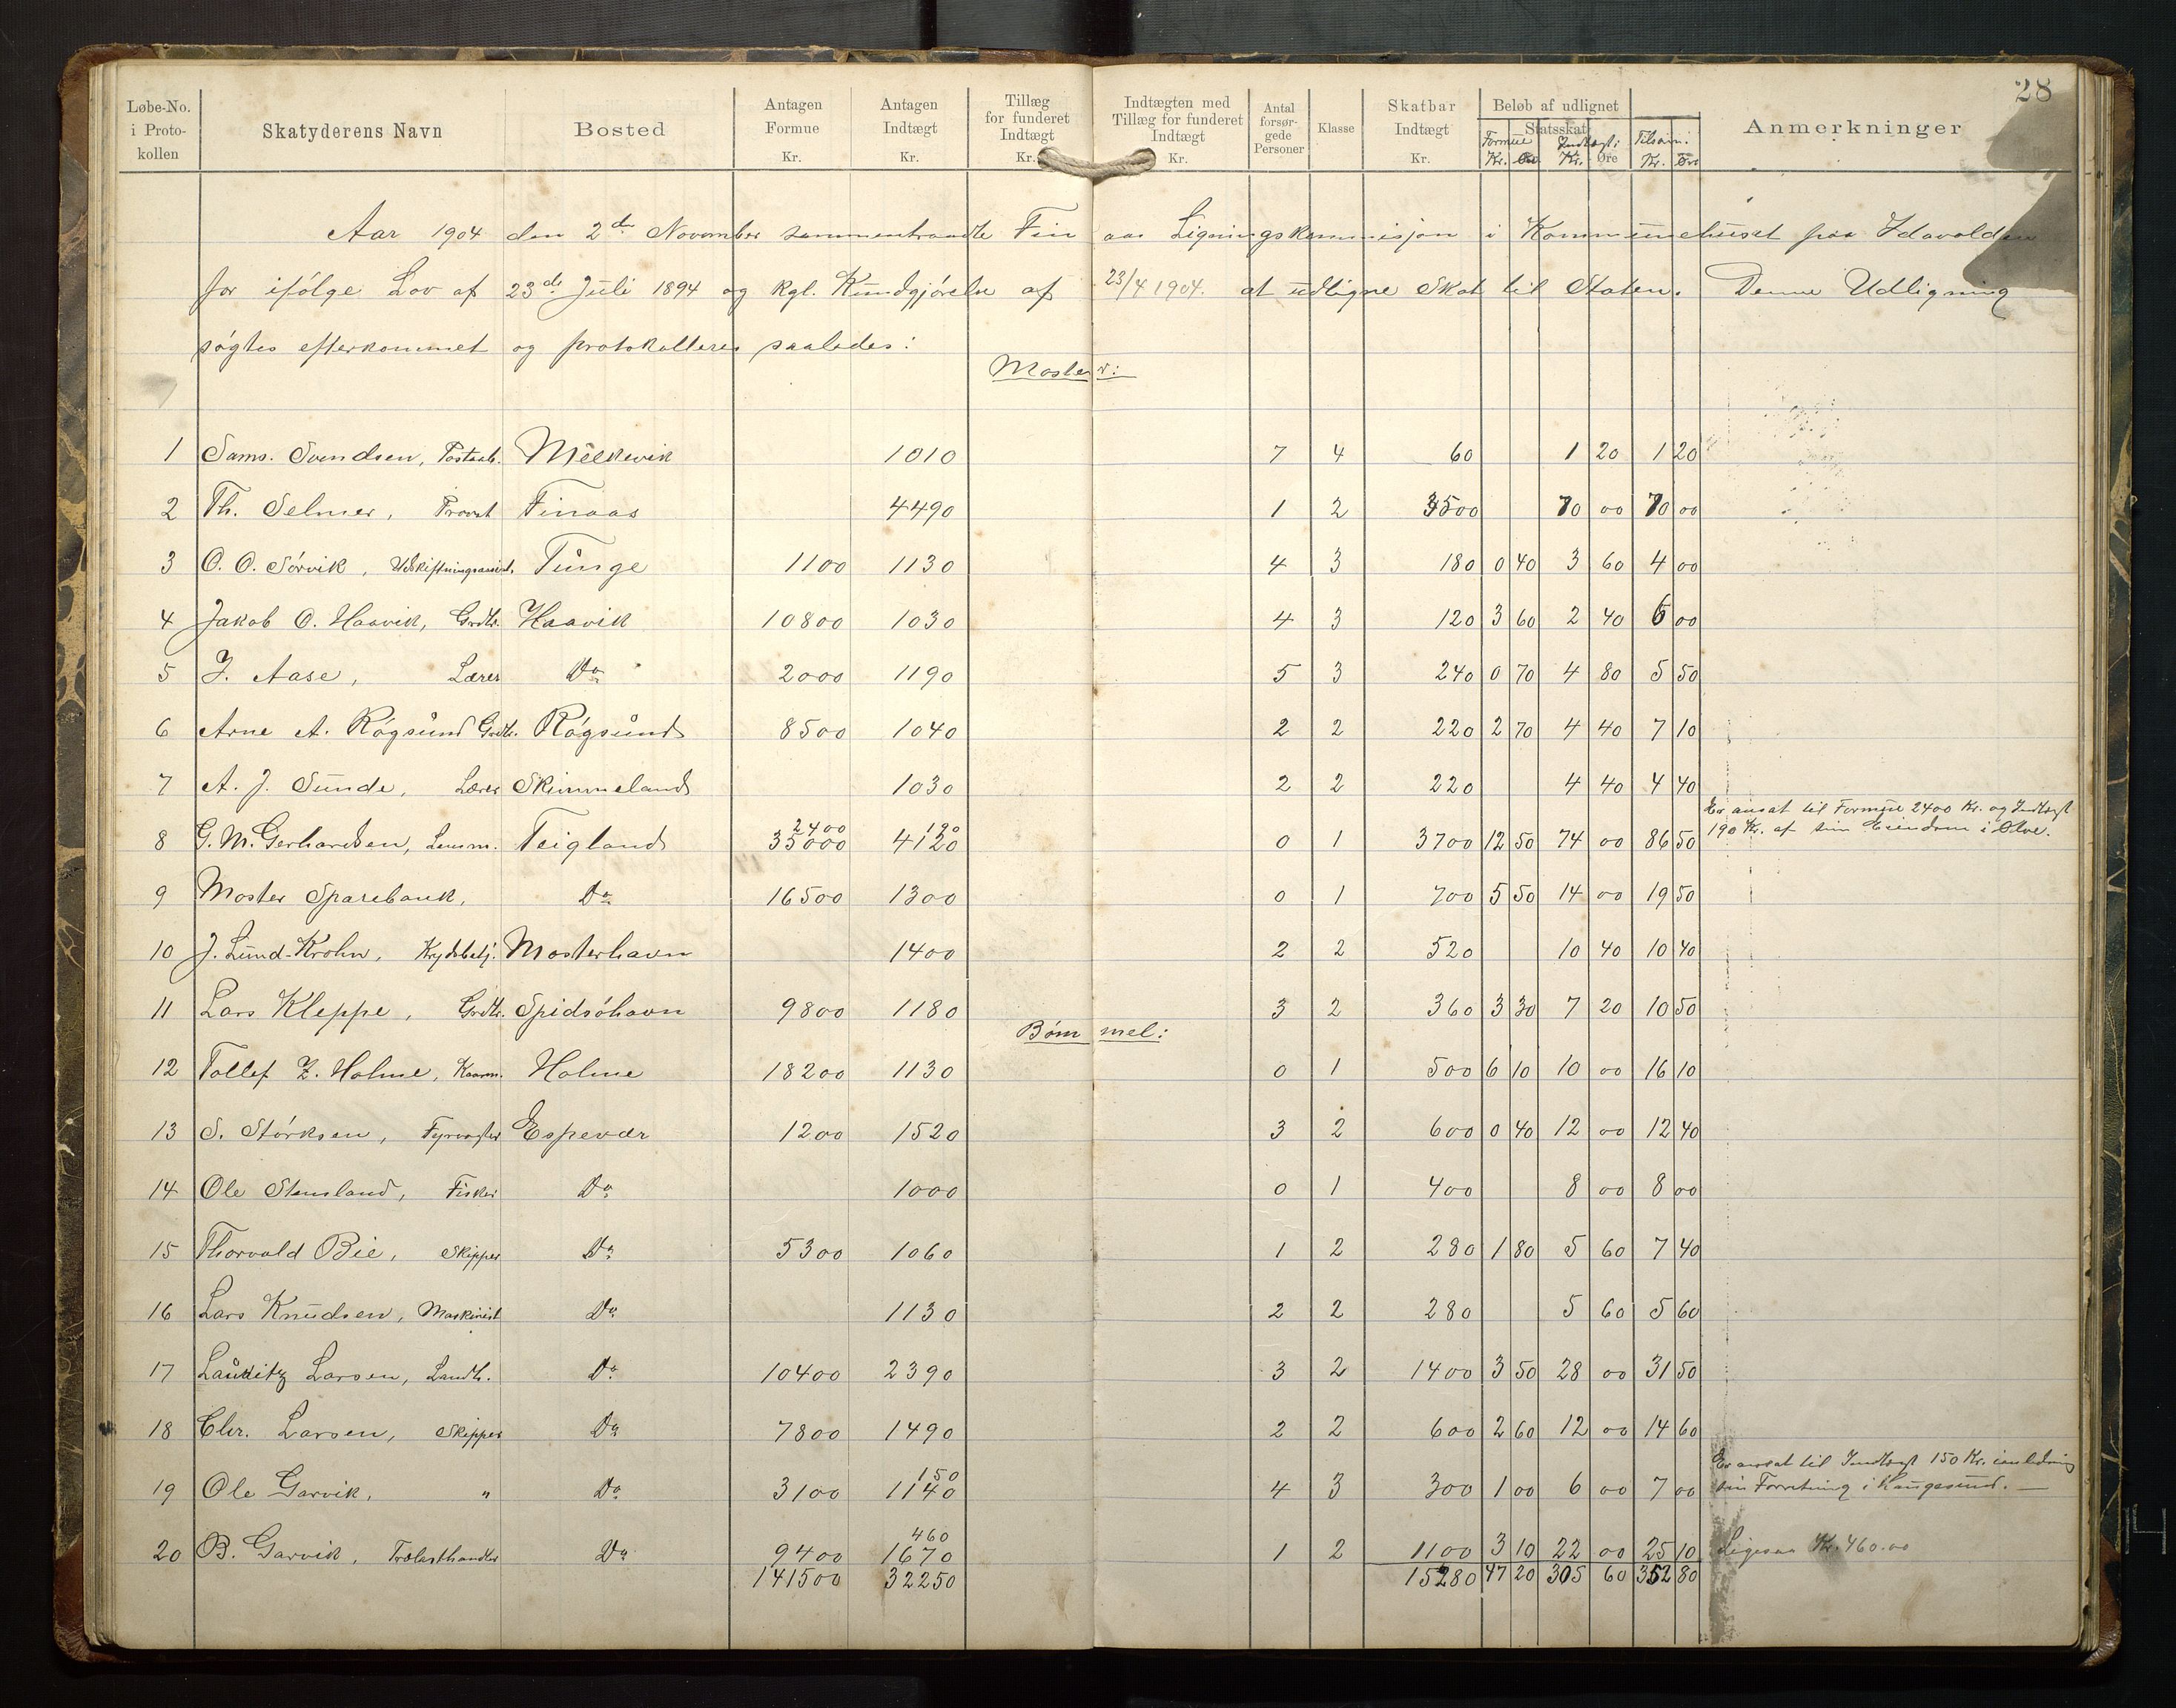 28
Løbe-No. i Proto-kollen | Skatyderens Navn | Bosted | Antagen Formue Kr. | Antagen Indtægt Kr. | Tillæg for funderet Indtægt Kr. | Indtægten med Tillæg for funderet Indtægt Kr. | Antal forsør-gede Personer | Klasse | Skatbar Indtægt Kr. | Beløb af udlignet Statsskat Formue Kr. Øre | Indtægt: Kr. Øre | Tilsam: Kr. Øre | Anmerkninger
Aar 1904 den 2de November sammentraadte Finaas Ligningskommisjon i Kommunehuset paa Idavolden
for ifølge Lov af 23de Juli 1894 og Kgl. Kundgjørelse af 23/4 1904. at udligne Skat til Staten. Denne Udligning
søgtes efterkommet og protokolleres saaledes:
Moster:
1 Sams. Svendsen, Postaab. Melkevik 1010 7 4 60 1 20 1 20
2 Th. Selmer, Provst Finaas 4490 1 2 3500 70 00 70 00
3 O. O. Sørvik, Udskiftningsassist. Tunge 1100 1130 4 3 180 0 40 3 60 4 00
4 Jakob O. Haavik, Grdbr. Haavik 10800 1030 4 3 120 3 60 2 40 6 00
5 J. Aase, Lærer Do 2000 1190 5 3 240 0 70 4 80 5 50
6 Arne A. Røgsund Grdbr. Røgsund 8500 1040 2 2 220 2 70 4 40 7 10
7 A. J. Sunde, Lærer Skimmeland 1030 2 2 220 4 40 4 40
Er ansat til Formue 2400 Kr. og Indtægt
2400 190
8 G. M. Gerhardsen, Lensm. Teigland 35000 4120 0 1 3700 12 50 74 00 86 50 190 Kr. af sin Eiendom i Ølve.
9 Moster Sparebank, Do 16500 1300 0 1 700 5 50 14 00 19 50
10 J. Lund-Krohn, Krydsbetj. Mosterhavn 1400 2 2 520 10 40 10 40
11 Lars Kleppe, Grdbr. Spidsøhavn 9800 1180 3 2 360 3 30 7 20 10 50
Bømmel:
12 Tollef Z. Holme, Kaarm. Holme 18200 1130 0 1 500 6 10 10 00 16 10
13 S. Størksen, Fyrvogter Espevær 1200 1520 3 2 600 0 40 12 00 12 40
14 Ole Stensland, Fisker Do 1000 0 1 400 8 00 8 00
15 Thorvald Bie, Skipper Do 5300 1060 1 2 280 1 80 5 60 7 40
16 Lars Knudsen, Maskinist Do 1130 2 2 280 5 60 5 60
17 Lauritz Larsen, Landh. Do 10400 2390 3 2 1400 3 50 28 00 31 50
18 Chr. Larsen, Skipper Do 7800 1490 2 2 600 2 60 12 00 14 60
Er ansat til Indtægt 150 Kr. i anledning
150
19 Ole Garvik, " Do 3100 1140 4 3 300 1 00 6 00 7 00 sin Forretning i Haugesund. —
460
20 B. Garvik, Trælasthandler Do 9400 1670 1 2 1100 3 10 22 00 25 10 Ligesaa Kr. 460.00
141500 32250 15280 47 20 305 60 352 80